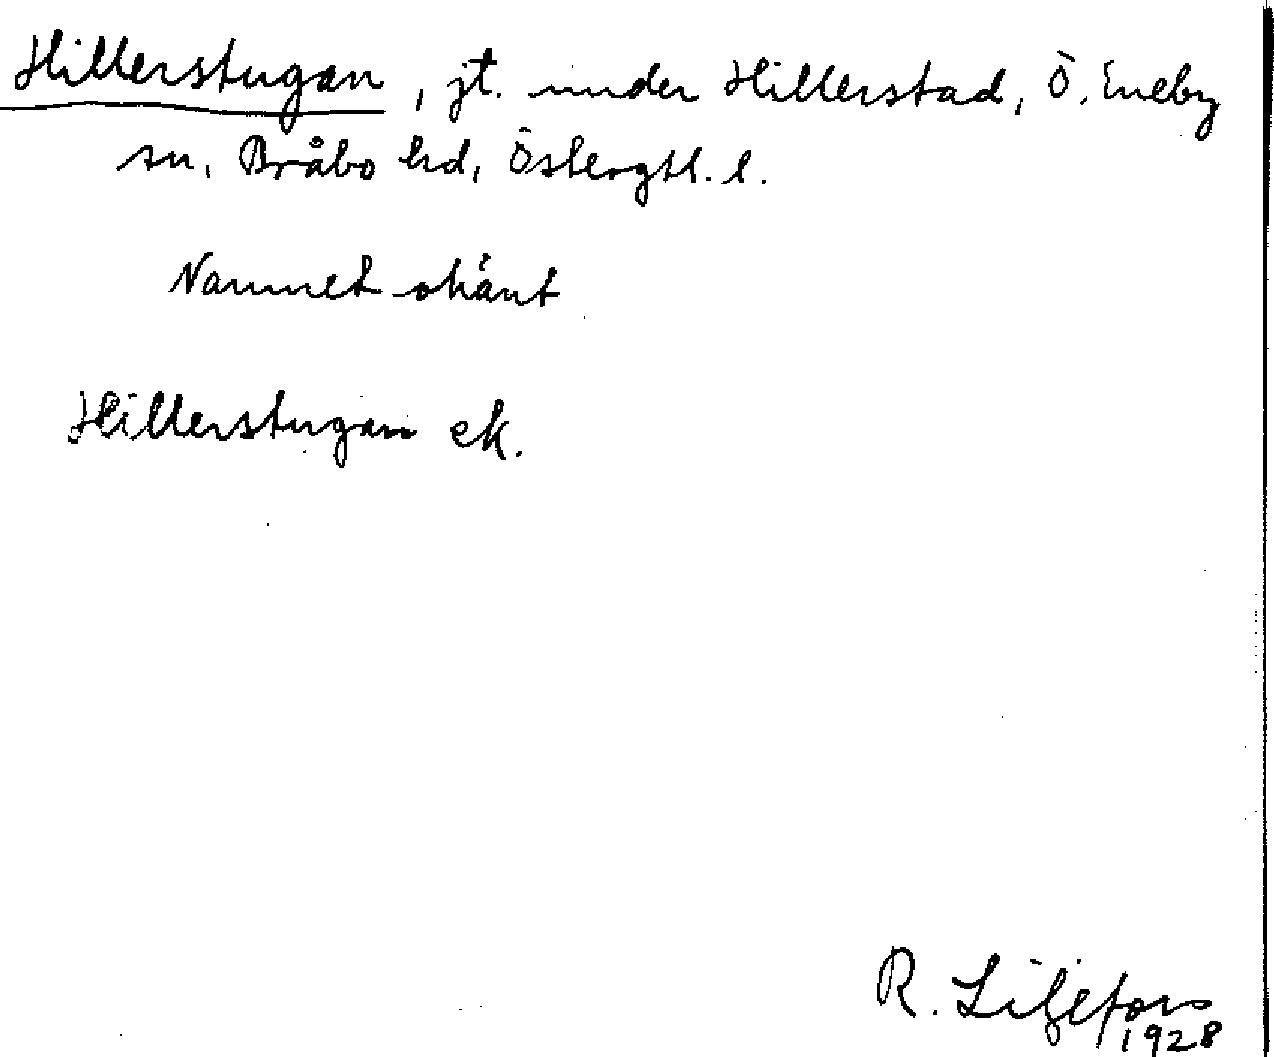 Hillerstugan, jt. under Hillerstad, Ö. Eneby
sn, Bråbo hd, Östergtl. l.
Namnet okänt
Hillerstugan ek.
R. Liljefors
1928